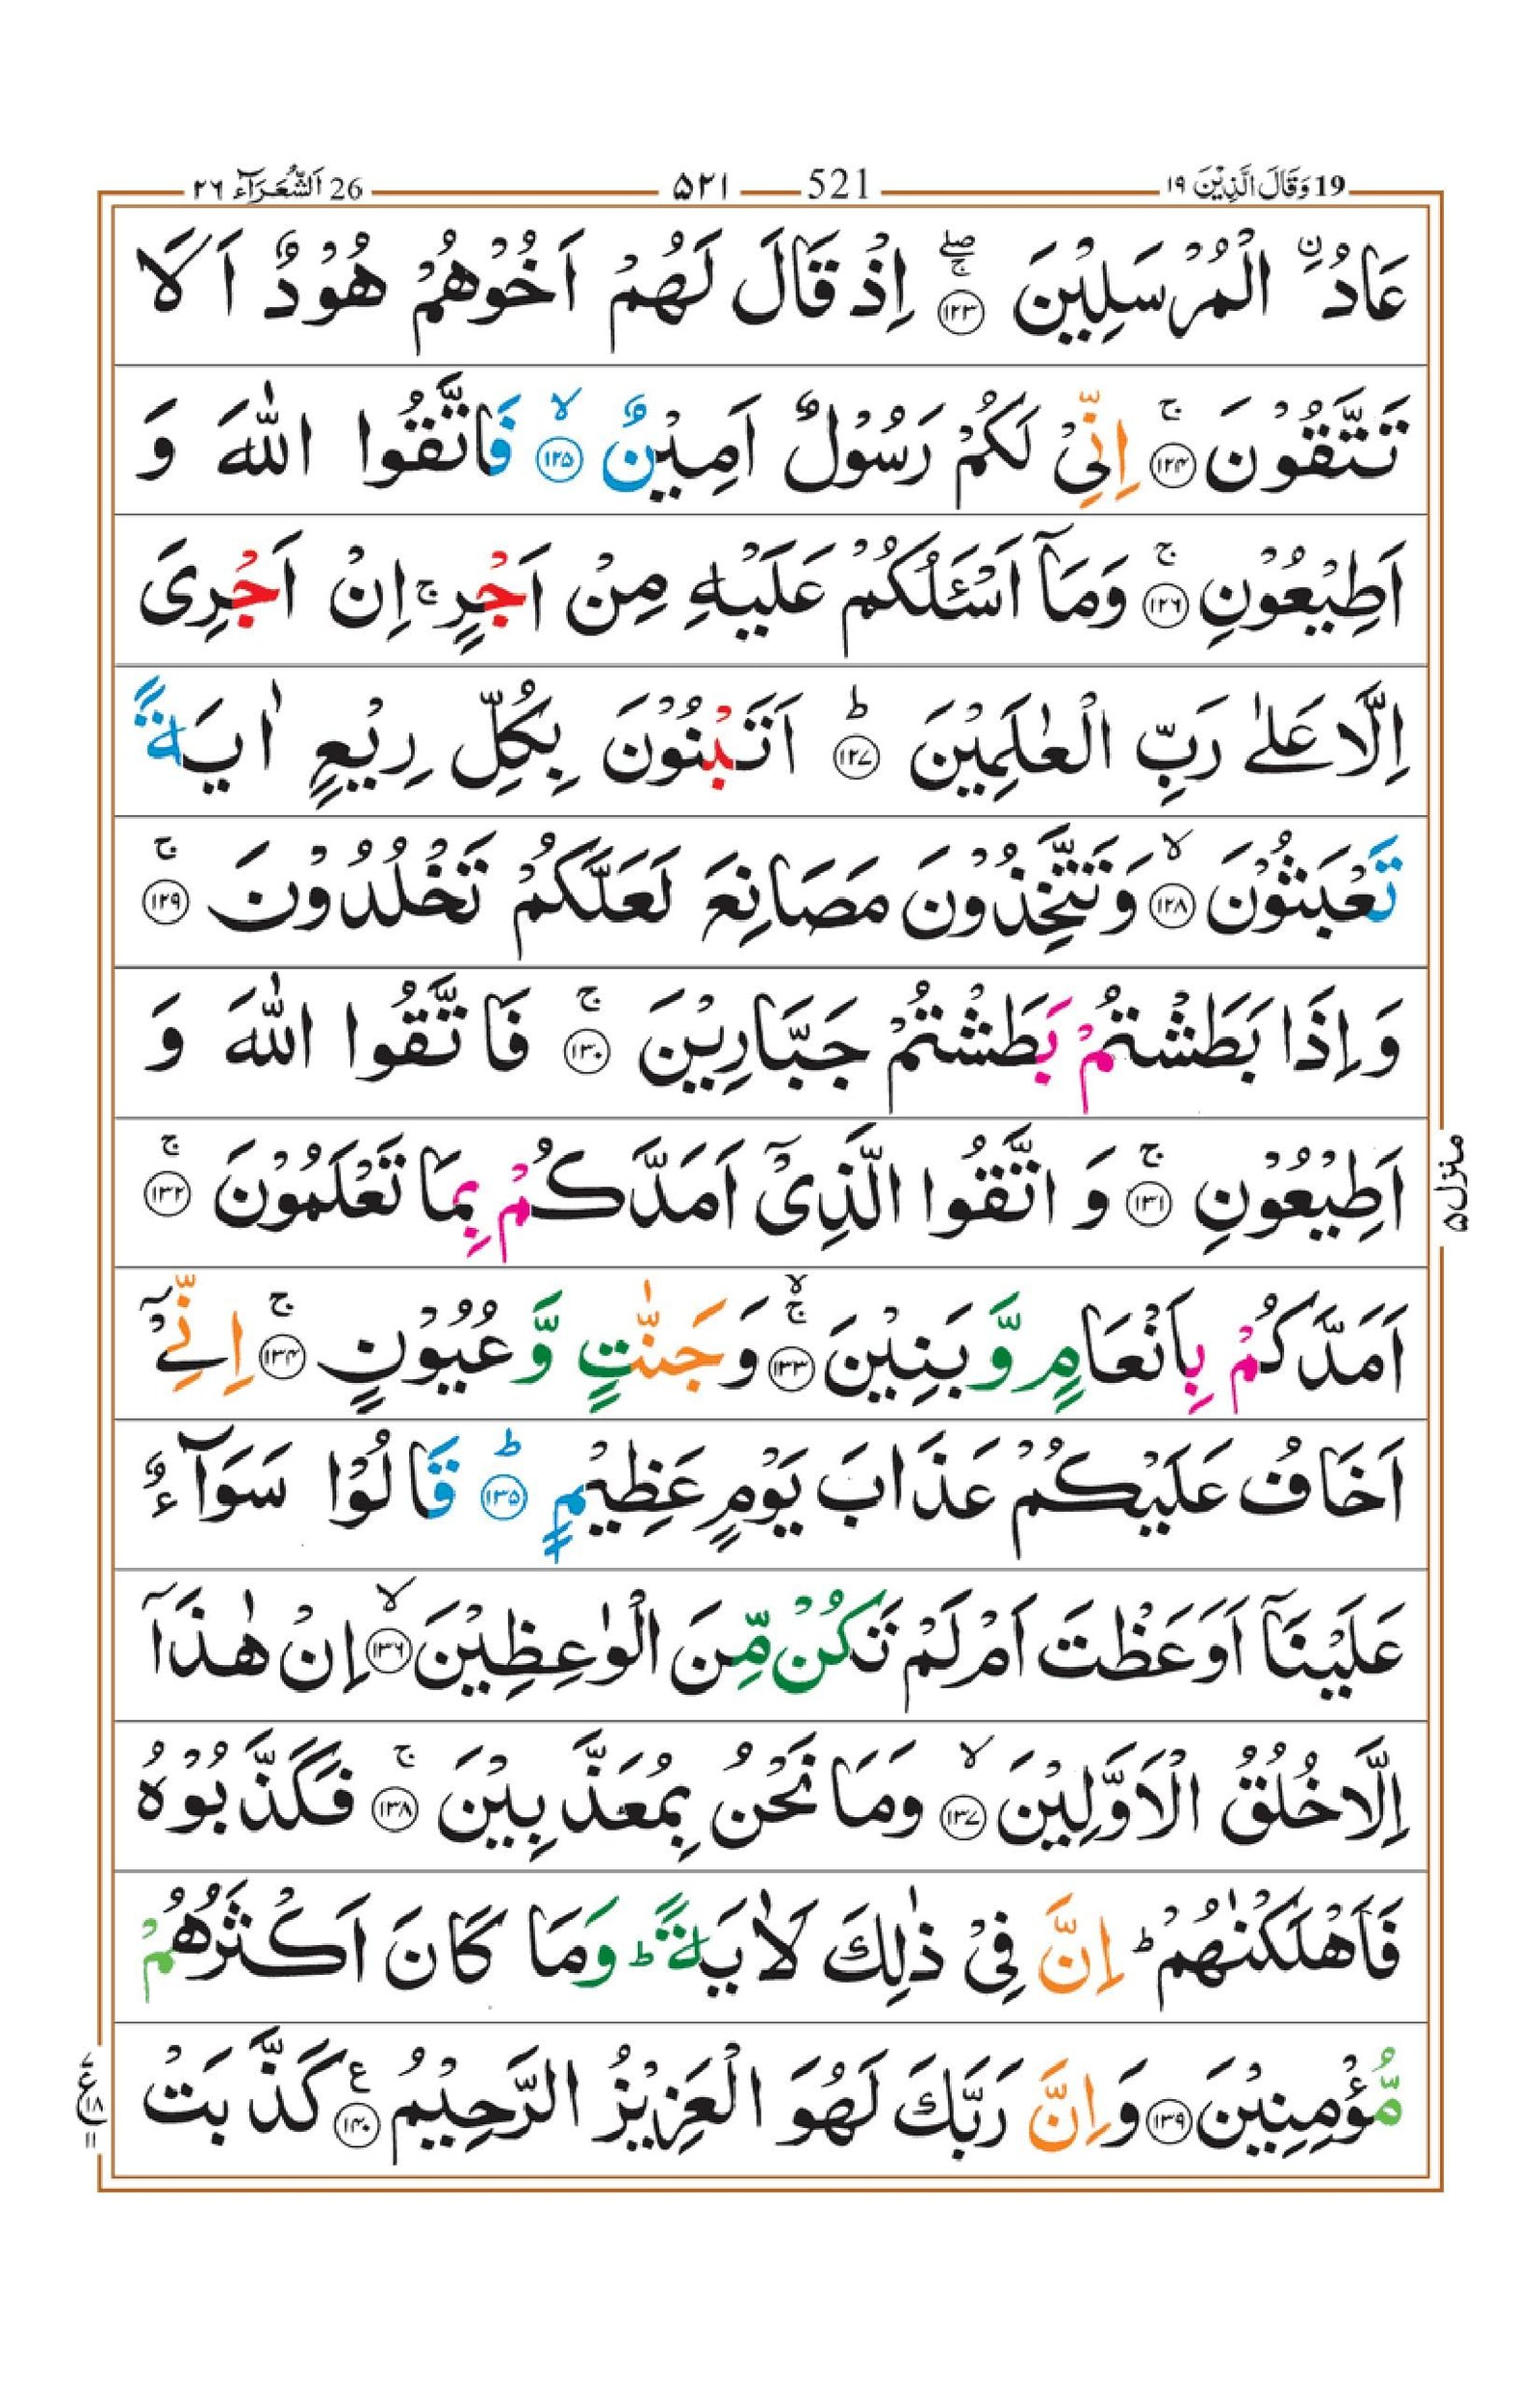 19 وَقَالَ الَّذِیْنَ ۱۹ 521 ۵۲۱ 26 اَلشُّعَرَآء ۲۶
عَادُ ۨ الْمُرْسَلِیْنَ ۚۖ ﴿۱۲۳﴾ اِذْ قَالَ لَهُمْ اَخُوْهُمْ هُوْدٌ اَلَا
تَتَّقُوْنَ ۚ ﴿۱۲۴﴾ اِنِّیْ لَكُمْ رَسُوْلٌ اَمِیْنٌ ۙ ﴿۱۲۵﴾ فَاتَّقُوا اللّٰهَ وَ
اَطِیْعُوْنِ ۚ ﴿۱۲۶﴾ وَمَاۤ اَسْـَٔلُكُمْ عَلَیْهِ مِنْ اَجْرٍ ۚ اِنْ اَجْرِیَ
اِلَّا عَلٰی رَبِّ الْعٰلَمِیْنَ ؕ ﴿۱۲۷﴾ اَتَبْنُوْنَ بِكُلِّ رِیْعٍ اٰیَةً
تَعْبَثُوْنَ ۙ ﴿۱۲۸﴾ وَتَتَّخِذُوْنَ مَصَانِعَ لَعَلَّكُمْ تَخْلُدُوْنَ ۚ ﴿۱۲۹﴾
وَاِذَا بَطَشْتُمْ بَطَشْتُمْ جَبَّارِیْنَ ۚ ﴿۱۳۰﴾ فَاتَّقُوا اللّٰهَ وَ
اَطِیْعُوْنِ ۚ ﴿۱۳۱﴾ وَ اتَّقُوا الَّذِیْۤ اَمَدَّكُمْ بِمَا تَعْلَمُوْنَ ۚ ﴿۱۳۲﴾
اَمَدَّكُمْ بِاَنْعَامٍ وَّبَنِیْنَ ۚۙ ﴿۱۳۳﴾ وَجَنّٰتٍ وَّعُیُوْنٍ ۚ ﴿۱۳۴﴾ اِنِّیْۤ
اَخَافُ عَلَیْكُمْ عَذَابَ یَوْمٍ عَظِیْمٍ ؕ ﴿۱۳۵﴾ قَالُوْا سَوَآءٌ
عَلَیْنَاۤ اَوَعَظْتَ اَمْ لَمْ تَكُنْ مِّنَ الْوٰعِظِیْنَ ۙ ﴿۱۳۶﴾ اِنْ هٰذَاۤ
اِلَّا خُلُقُ الْاَوَّلِیْنَ ۙ ﴿۱۳۷﴾ وَمَا نَحْنُ بِمُعَذَّبِیْنَ ۚ ﴿۱۳۸﴾ فَكَذَّبُوْهُ
فَاَهْلَكْنٰهُمْ ؕ اِنَّ فِیْ ذٰلِكَ لَاٰیَةً ؕ وَمَا كَانَ اَكْثَرُهُمْ
مُّؤْمِنِیْنَ ﴿۱۳۹﴾ وَاِنَّ رَبَّكَ لَهُوَ الْعَزِیْزُ الرَّحِیْمُ ﴿۱۴۰﴾ ع كَذَّبَتْ
منزل ۵
ع ۷ ۱۸ ۱۱